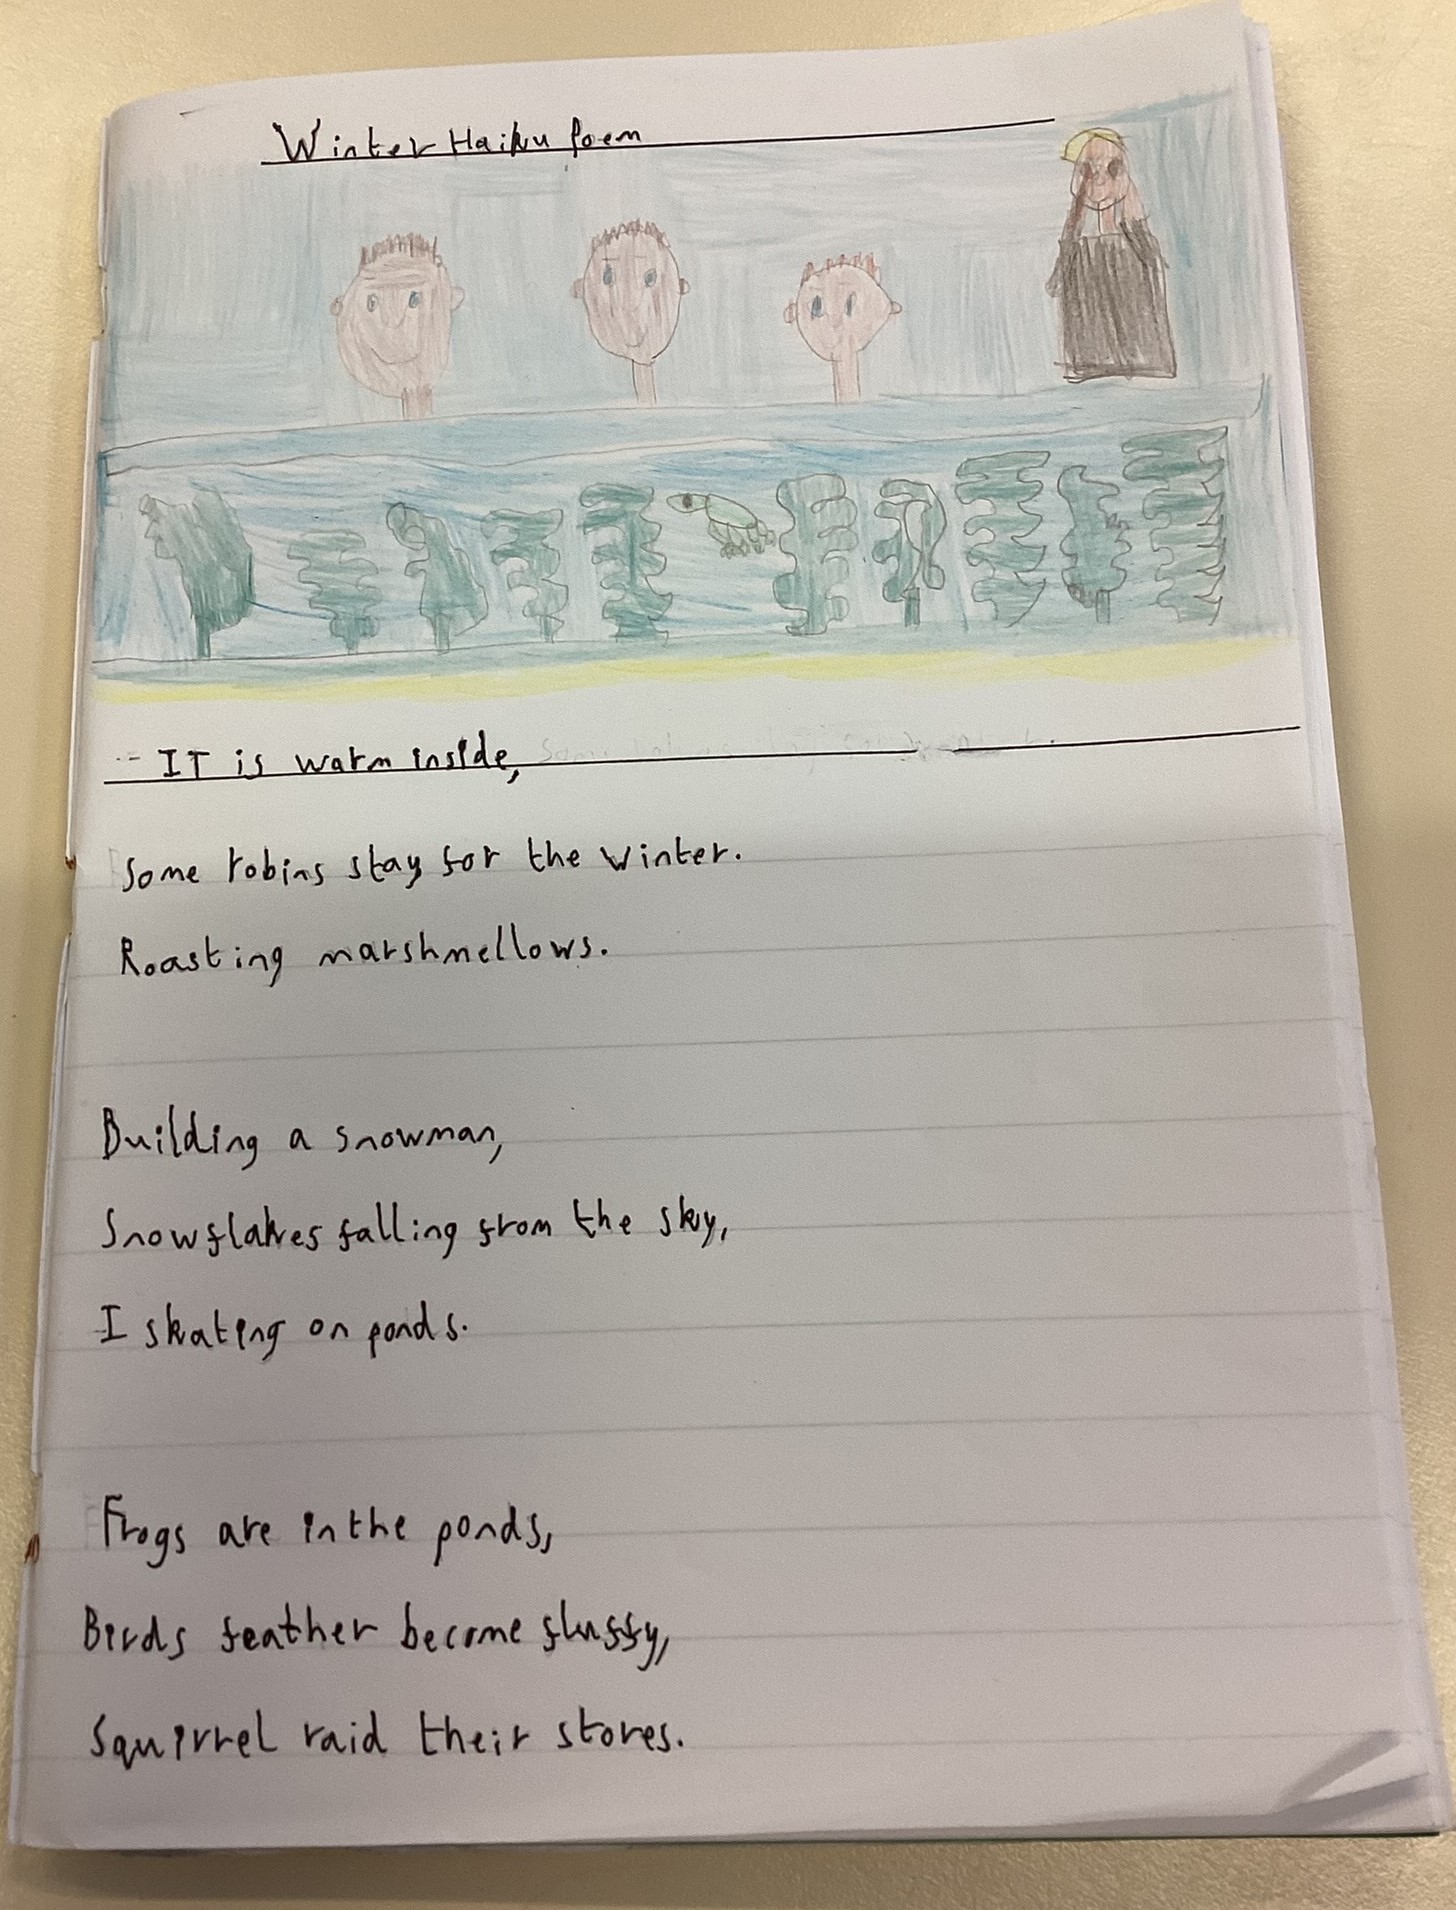 Winter Haiku Poem
IT is warm inside,
Some robins stay for the winter.
Roasting marshmellows.
Building a snowman,
Snowflakes falling from the sky,
I skating on ponds.
Frogs are in the ponds,
Birds feather become fluffy,
Squirrel raid their stores.